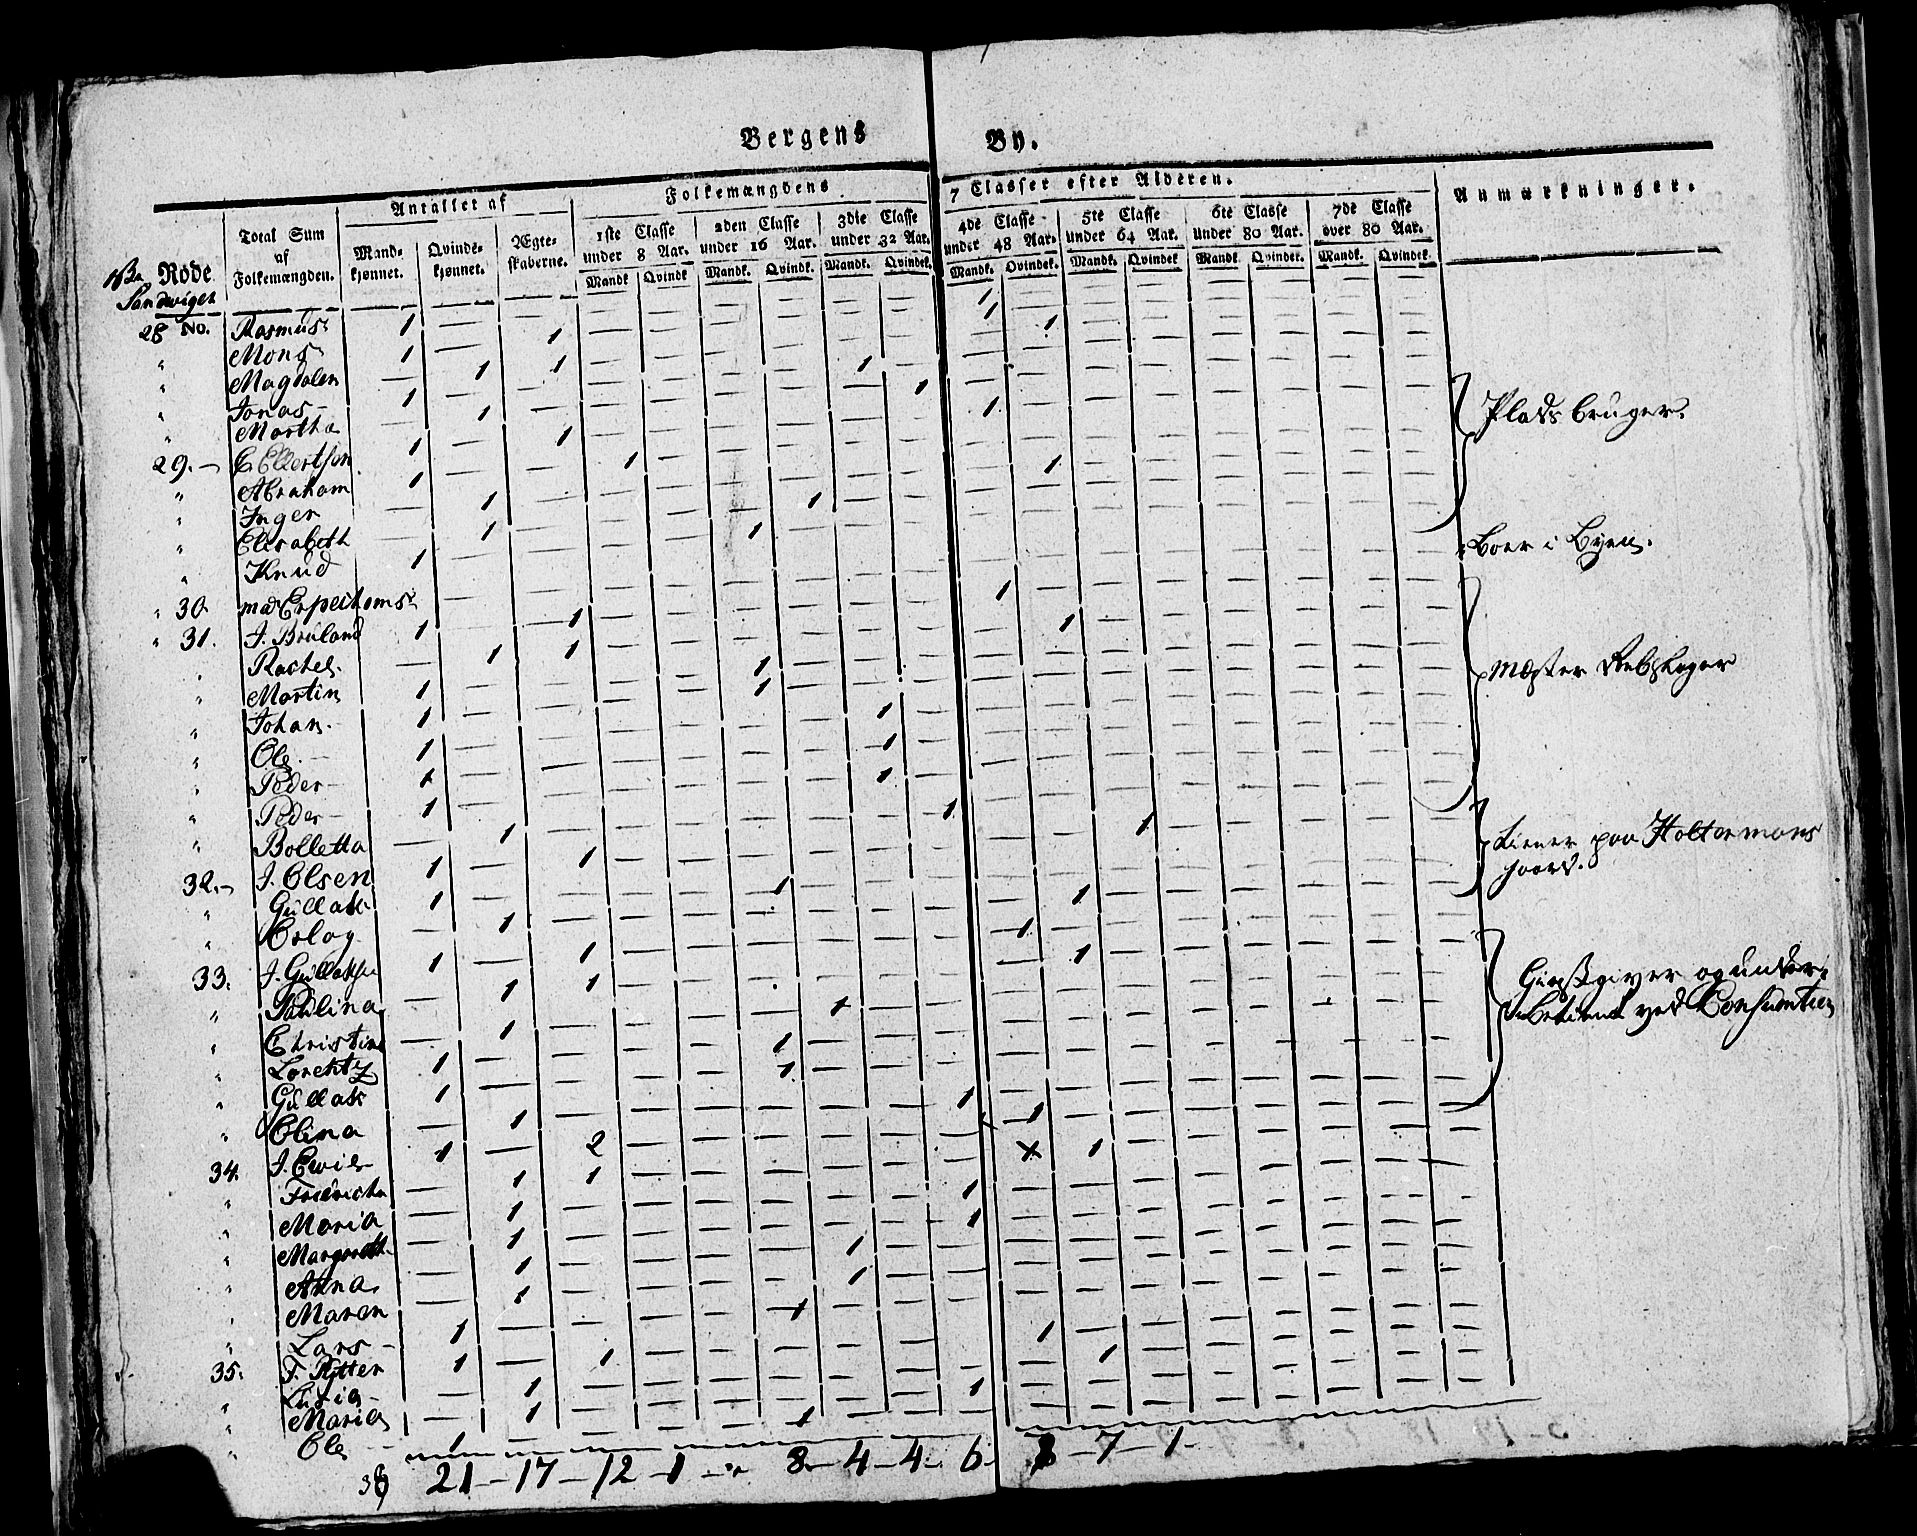 Bergens By.
Antallet af Folkemængdens 7 Classer efter Alderen. Anmærkninger.
Total Sum af Folkemængden. Mandkjønnet. Qvindekjønnet. Ægteskaberne. 1ste Classe under 8 Aar. 2den Classe under 16 Aar. 3die Classe under 32 Aar. 4de Classe under 48 Aar. 5te Classe under 64 Aar. 6te Classe under 80 Aar. 7de Classe over 80 Aar.
Mandk. Qvindk. Mandk. Qvindk. Mandk. Qvindek. Mandk. Qvindek. Mandk. Qvindek Mandk. Qvindek. Mandk. Qvindek.
Rode
Sandviget
28 No. Rasmus 1 — — 1
" Mons 1 — 1 1
" Magdalen — 1 1 1
" Jonas 1 — — 1
" Martha — 1 — 1
29. — 1 — 1 1
" Abraham 1 — — 1
" Inger — 1 — 1
" Elisabeth — 1 — 1
" Knud 1 — — 1
Pladsbruger.
30 mad
Boer i Byen.
31. J. Bruland 1 — 1 1
" Rachel — 1 1 1
" Martin 1 — — 1
" Johan 1 — — 1
" Ole 1 — — 1
" Peder 1 — — 1
" Peder 1 — — 1
" Bolletta — 1 — 1
Mester Rebslager
32. J. Olsen 1 — 1 1
" Gullak 1 — — 1
" — 1 — 1
tiener paa Holtermans
gaard.
33. J. Gullaksen 1 — 1 1
" Paulina — 1 1 1
" Christine — 1 — 1
" Lorentz 1 — — 1
" Gullak 1 — — 1
" Olina — 1 — 1
Giestgiver og under
betient ved Consumtion
34. J. 1 — 2 1
" Fredricha — 1 1 1
" Maria — 1 — 1
" Margreth — 1 — 1
" Anna — 1 — 1
" Maren — 1 — 1
" Lars 1 — — 1
35. 1 — 1 1
" — 1 — 1
" Maria — 1 — 1
" Ole 1
38 21 — 17 — 12 — 1 — " 8 — 4 — 4 — 6 — 8 — 7 — 1 —